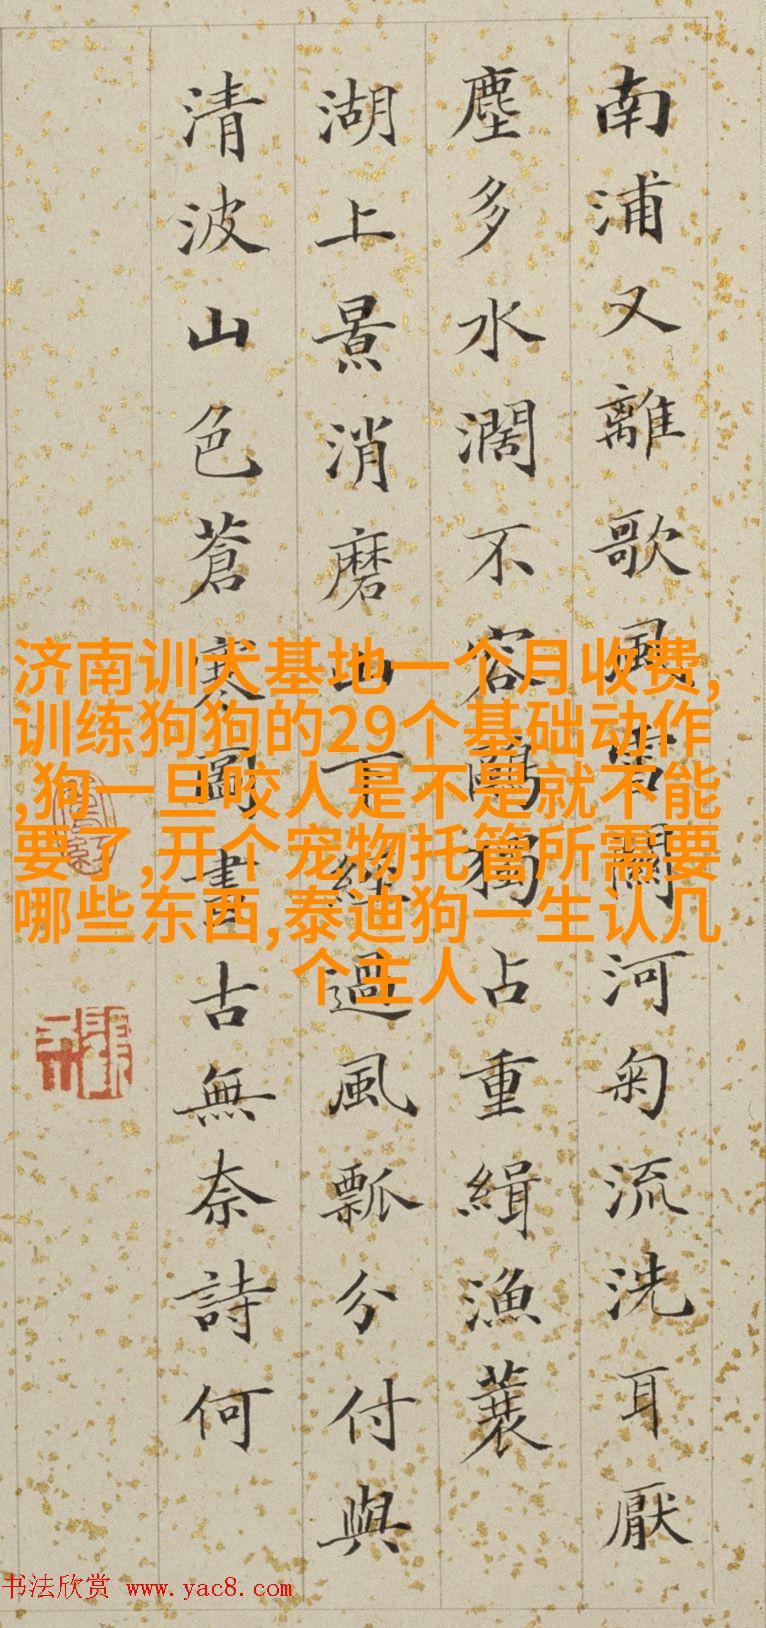 南浦又離歌風雪關河匊流洗耳厭
塵多水濶不容鷗獨占重緝漁蓑
湖上景消磨山下經過風瓢分付與
清波山色蒼寒圖畫古無奈詩何
济南训犬基地一个月收费,
训练狗狗的29个基础动作
,狗一旦咬人是不是就不能
要了,开个宠物托管所需要
哪些东西,泰迪狗一生认几
个主人
书法欣赏 www.yac8.com